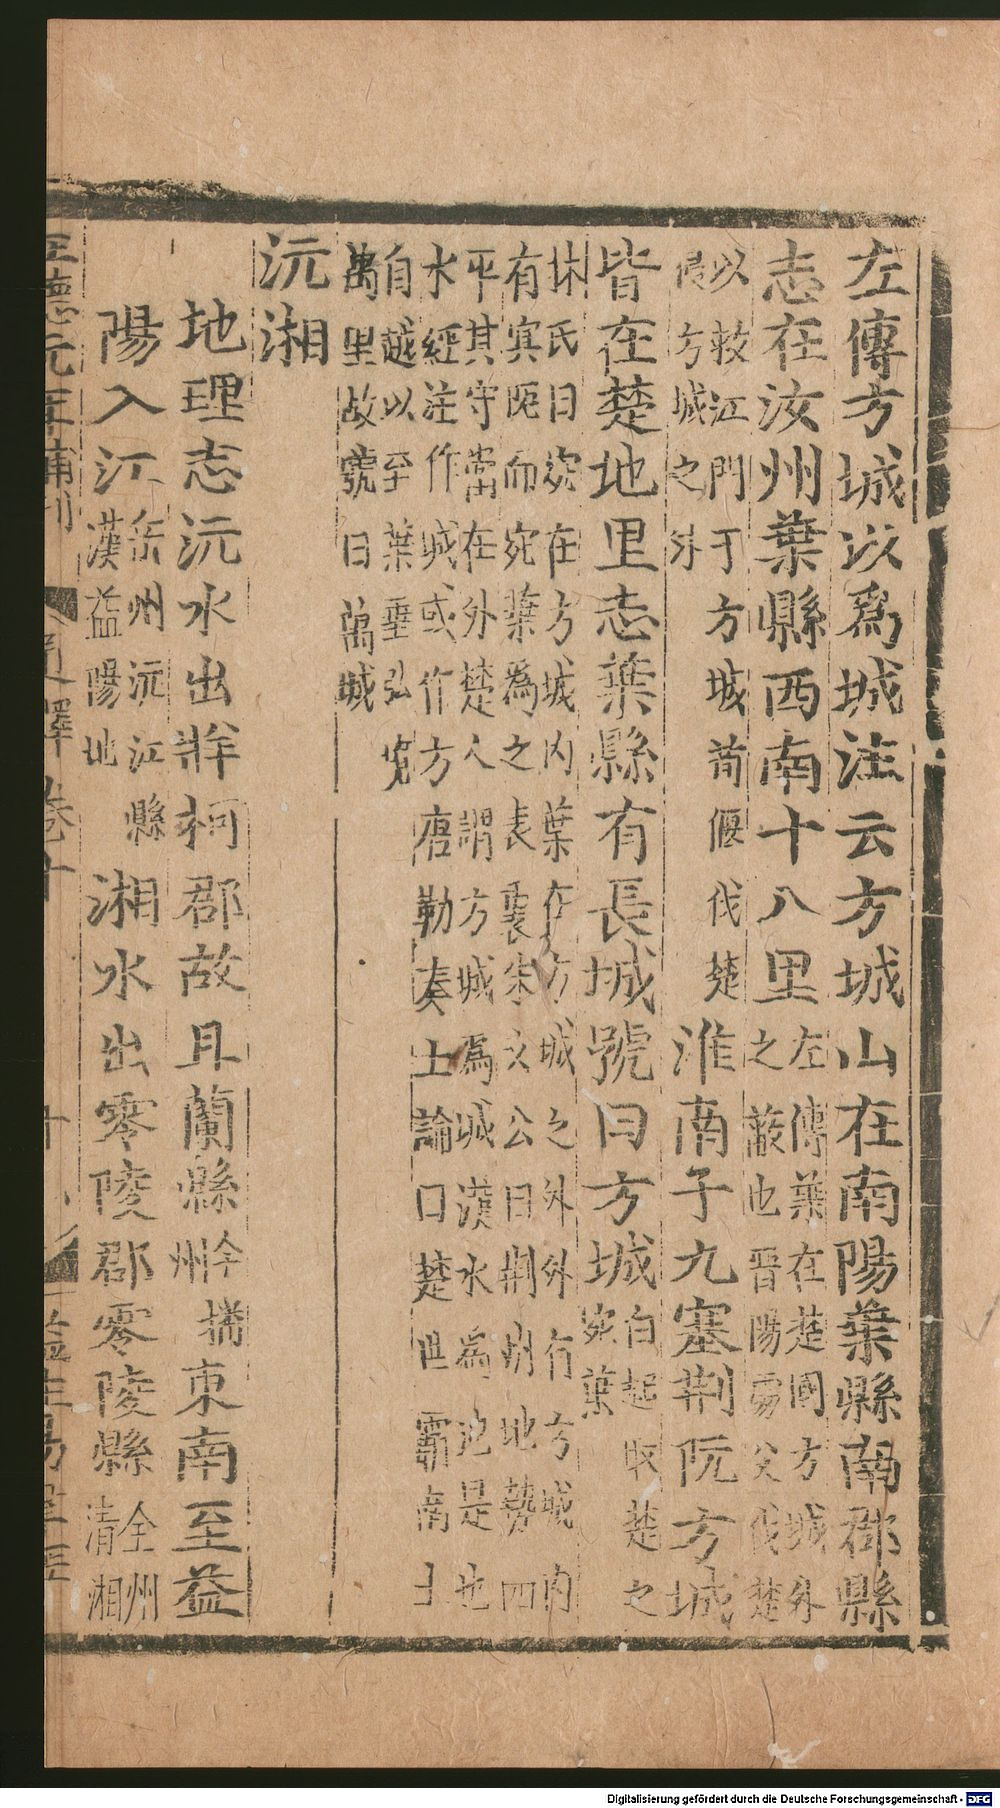 左傳方城以爲城注云方城山在南陽葉縣南郡縣
志在汝州葉縣西南十八里左傳葉在楚國方城外
之蔽也晉陽處父伐楚
以救江門于方城荀偃伐楚
侵方城之外
淮南子九塞荆阮方城
皆在楚地里志葉縣有長城號曰方城白起取楚之
宛葉
林氏曰宛在方城内葉在方城之外外有方城内
有冥阨而宛葉爲之表裏宋文公曰荆州地勢四
平其守當在外楚人謂方城爲城漢水爲池是也
水經注作城或作方唐勒奏土論曰楚世霸南土
自越以至葉垂弘
萬里故號曰萬城
沅湘
地理志沅水出牂柯郡故且蘭縣今
州
東南至益
陽入江沅江縣
漢益陽地
湘水出零陵郡零陵縣全州
清湘
正德元年
卷十